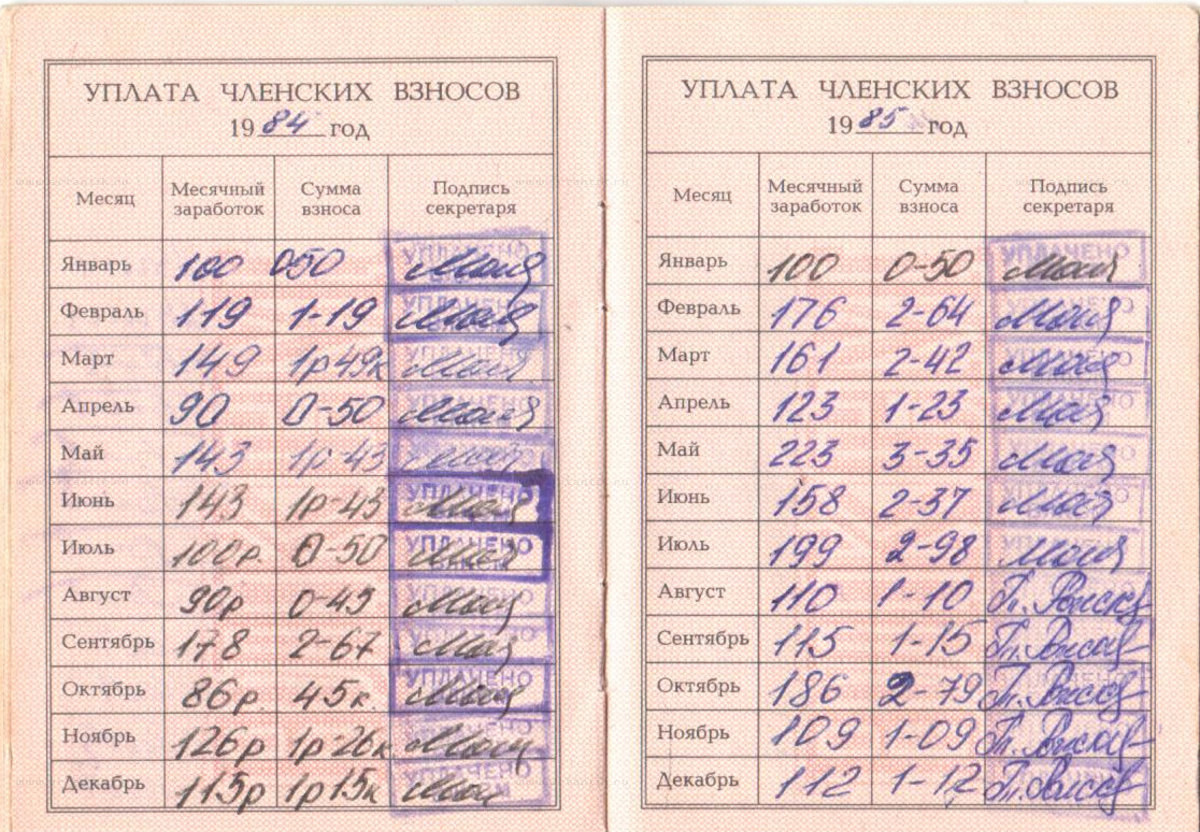 УПЛАТА ЧЛЕНСКИХ ВЗНОСОВ
1984 год
Месяц Месячный заработок Сумма взноса Подпись секретаря
Январь 100 0-50 УПЛАЧЕНО
Февраль 119 1-19 УПЛАЧЕНО
Март 149 1р 49к УПЛАЧЕНО
Апрель 90 0-50 УПЛАЧЕНО
Май 143 1р-43
Июнь 143 1р-43 УПЛАЧЕНО
Июль 100р. 0-50 УПЛАЧЕНО
Август 90р 0-45 УПЛАЧЕНО
Сентябрь 178 2-67 УПЛАЧЕНО
Октябрь 86р. 45к. УПЛАЧЕНО
Ноябрь 126р 1р-26к УПЛАЧЕНО
Декабрь 115р 1р 15к УПЛАЧЕНО
УПЛАТА ЧЛЕНСКИХ ВЗНОСОВ
1985 год
Месяц Месячный заработок Сумма взноса Подпись секретаря
Январь 100 0-50 УПЛАЧЕНО
Февраль 176 2-64 УПЛАЧЕНО
Март 161 2-42 УПЛАЧЕНО
Апрель 123 1-23 УПЛАЧЕНО
Май 223 3-35
Июнь 158 2-37 УПЛАЧЕНО
Июль 199 2-98 УПЛАЧЕНО
Август 110 1-10
Сентябрь 115 1-15
Октябрь 186 2-79
Ноябрь 109 1-09
Декабрь 112 1-12